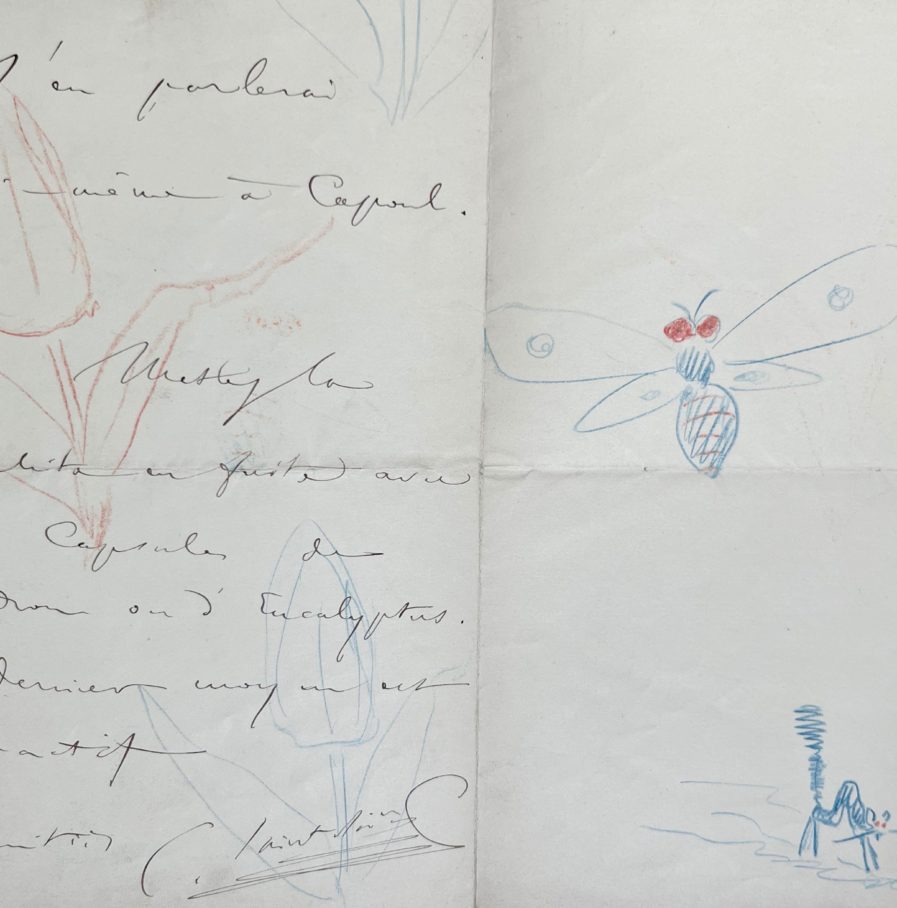 J'en parlerai
-même à Capoul.
Mettez la
en fuite avec
Capsules de
ou d'Eucalyptus.
dernier moyen est
actif
C. Saint-Saëns